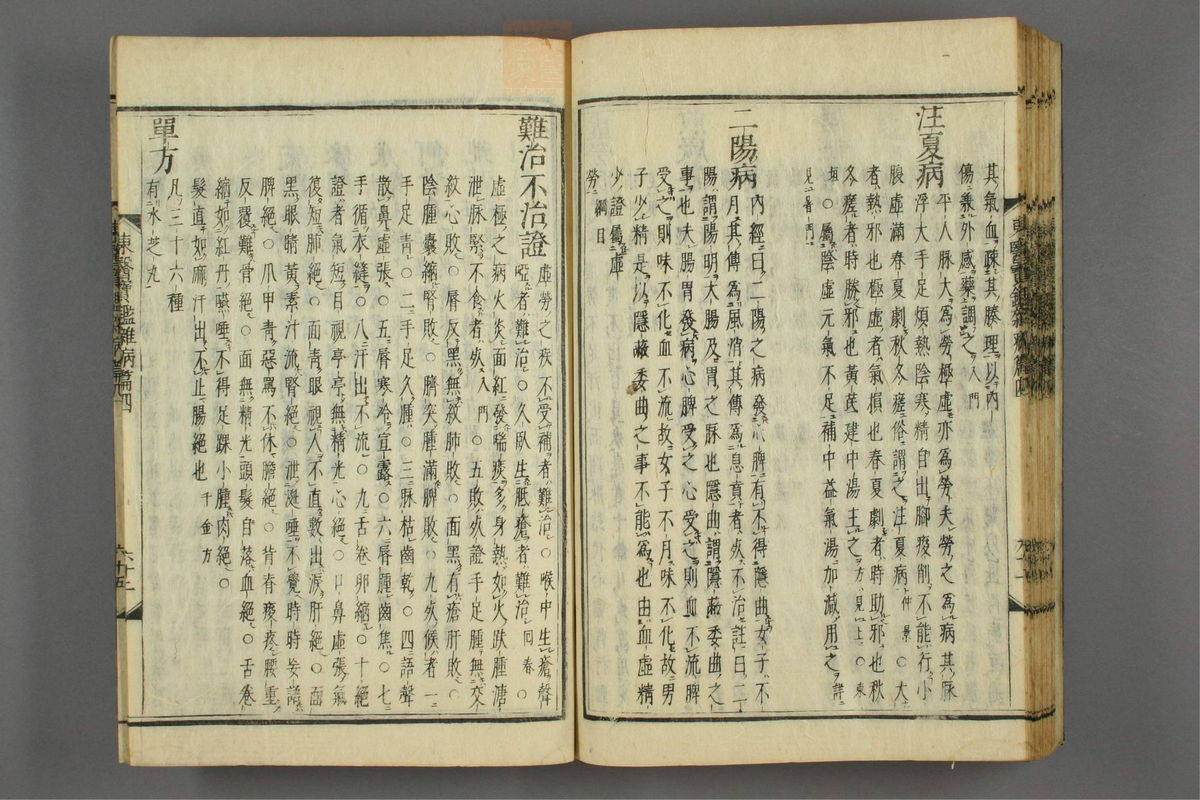 其氣血疎其腠理以內
傷兼外感藥調之入門
注夏病
平人脉大爲勞極虛亦爲勞夫勞之爲病其脉
浮大手足煩熱陰寒精自出脚痠削不能行小
腹虛滿春夏劇秋冬瘥俗謂之注夏病仲景○大
者熱邪也極虛者氣損也春夏劇者時助邪也秋
冬瘥者時勝邪也黃芪建中湯主之方見上○東
垣○屬陰虛元氣不足補中益氣湯加減用之詳
見暑門
二陽病
內經曰二陽之病發心脾有不得隱曲女子不
月其傳爲風消其傳爲息賁者死不治註曰二
陽謂陽明大腸及胃之脉也隱曲謂隱蔽委曲之
事也夫腸胃發病心脾受之心受之則血不流脾
受之則味不化血不流故女子不月味不化故男
子少精是以隱蔽委曲之事不能爲也由血虛精
少證屬虛
勞綱目
難治不治證
虛勞之疾不受補者難治○喉中生瘡聲
啞者難治○久臥生胝瘡者難治回春○
虛極之病火炎面紅發喘痰多身熱如火趺腫溏
泄脉緊不食者死入門○五敗死證手足腫無交
紋心敗○脣反黑無紋肺敗○面黑有瘡肝敗○
陰腫囊縮腎敗○臍突腫滿脾敗○九死候者一
手足靑○二手足久腫○三脉枯齒乾○四語聲
散鼻虛張○五脣寒冷宣露○六脣腫齒焦○七
手循衣縫○八汗出不流○九舌卷卵縮○十絕
證者氣短目視亭亭無精光心絕○口鼻虛張氣
復短肺絕○面靑眼視人不直數出淚肝絕○面
黑眼睛黃素汁流腎絕○泄涎唾不覺時時妄語
脾絕○爪甲靑惡罵不休膽絕○背脊痠疼腰重
反覆難骨絕○面無精光頭髮自落血絕○舌卷
縮如紅丹嚥唾不得足踝小腫肉絕○
髮直如麻汗出不止腸絕也千金方
單方
凡三十六種
有水芝丸
東醫寶鑑雜病篇四
六十五